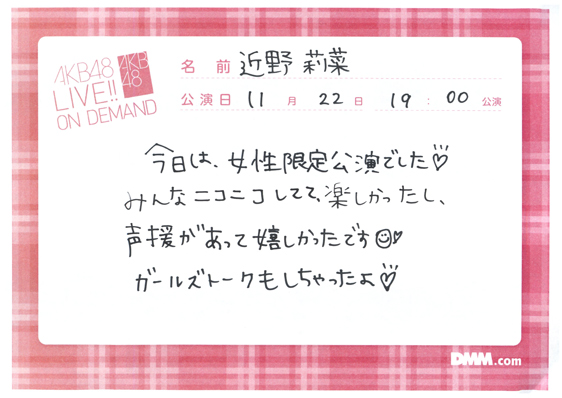 AKB48
LIVE!!
ON DEMAND
AKB
48
名前 近野 莉菜
公演日 11月 22日 19:00 公演
今日は、女性限定公演でした♡
みんなニコニコしてて、楽しかったし、
声援があって嬉しかったです☺♥
ガールズトークもしちゃったよ♡
DMM.com